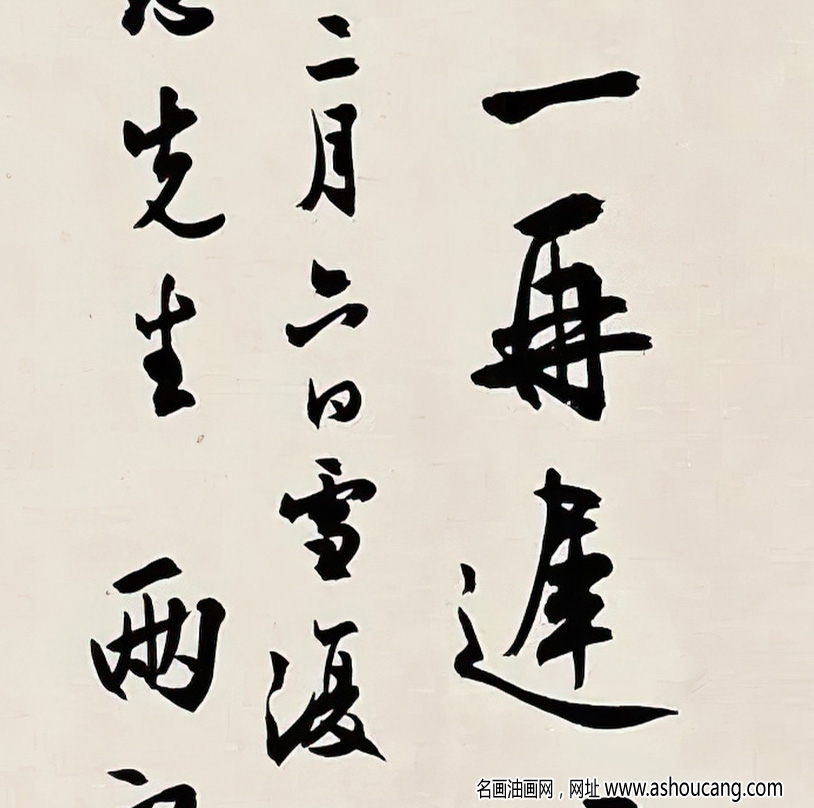 一再遲
二月六日雪復
先生 兩
名画油画网，网址 www.ashoucang.com